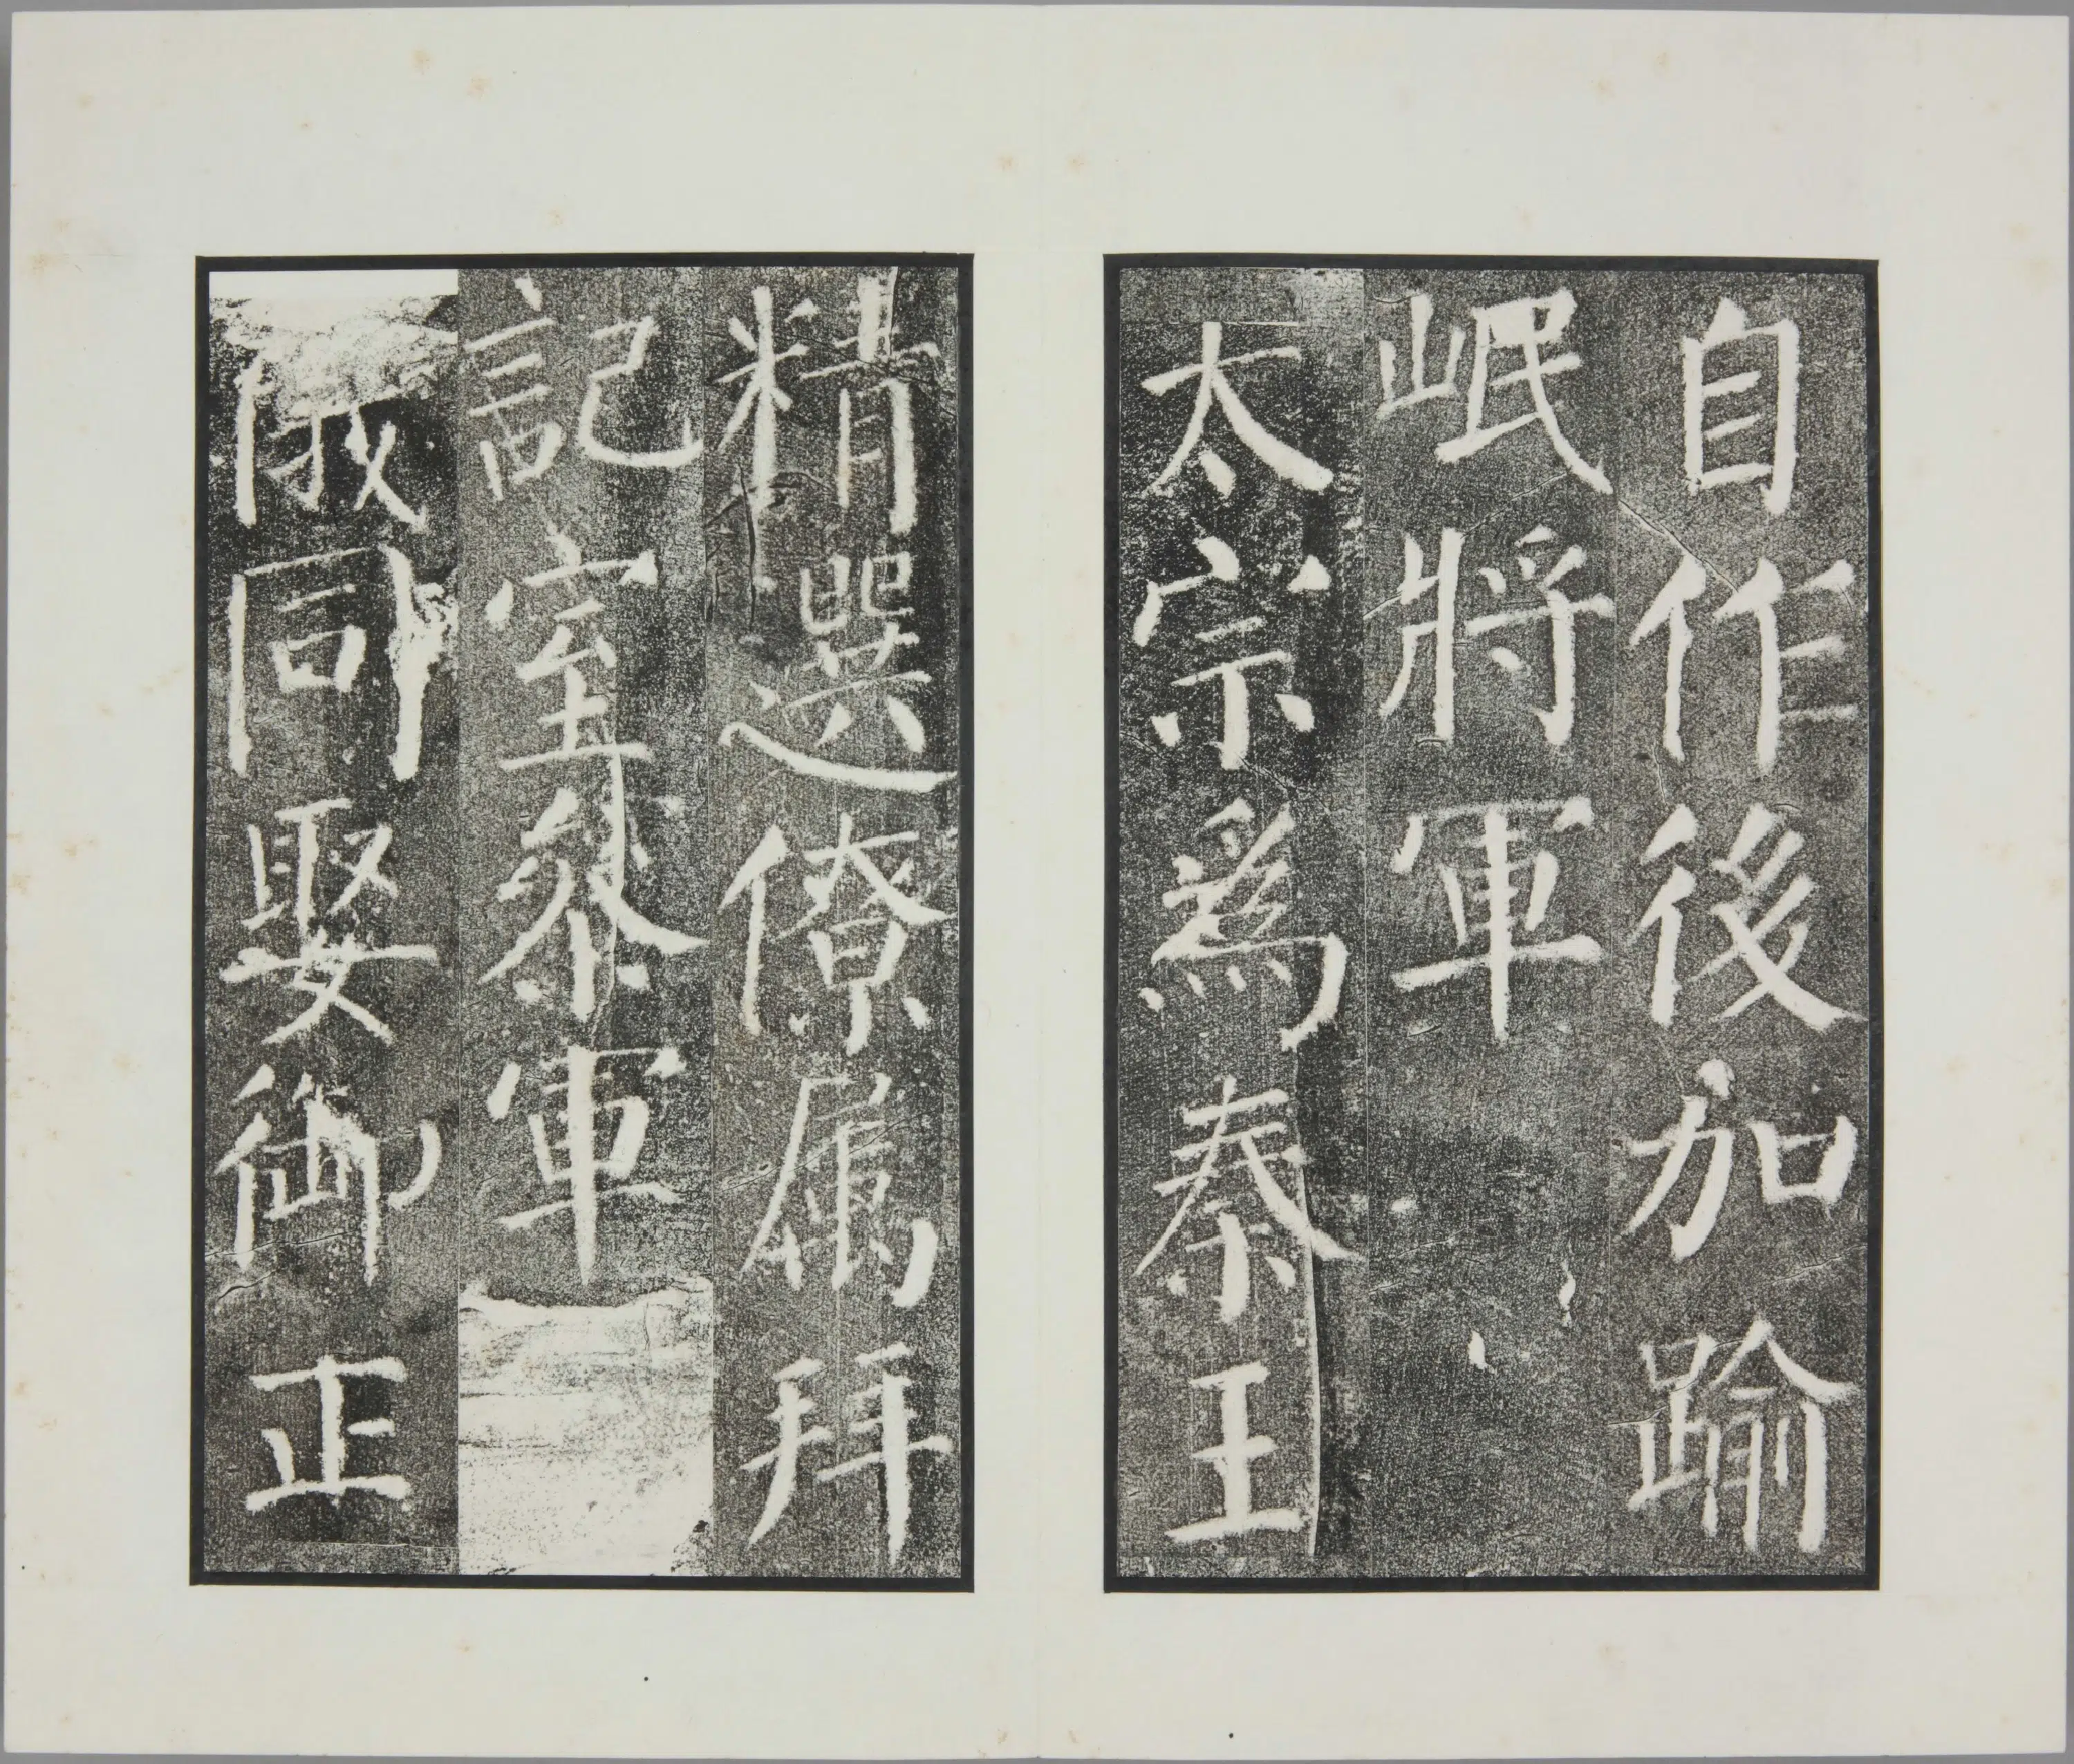 自作後加踰
岷將軍
太宗爲秦王
精選僚屬拜
記室叅軍
俄同娶御正